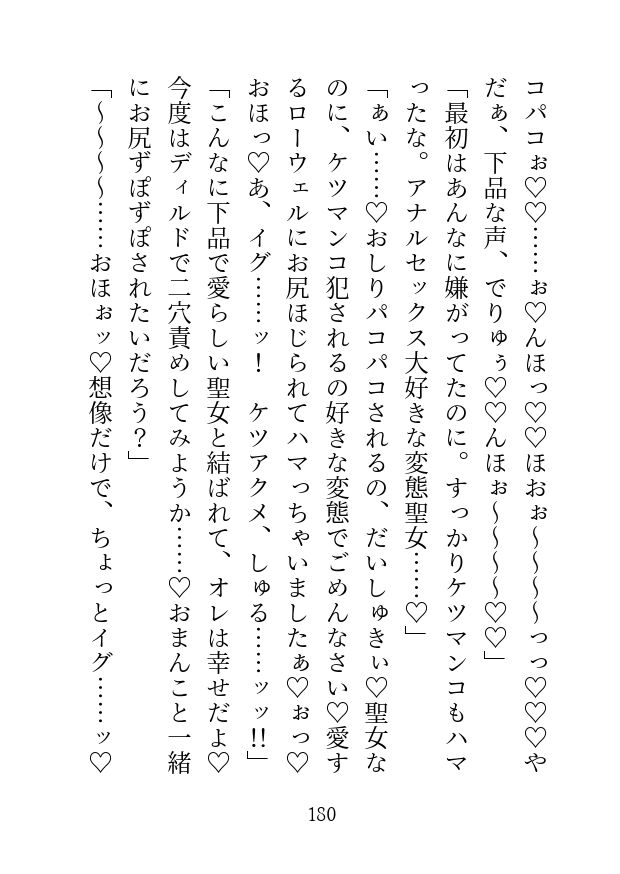 コパコぉ♡♡……ぉ♡んほっ♡♡ほおぉ～～～～っっ♡♡♡や
だぁ、下品な声、でりゅぅ♡♡んほぉ～～～～♡♡」
「最初はあんなに嫌がってたのに。すっかりケツマンコもハマ
ったな。アナルセックス大好きな変態聖女……♡」
「ぁい……♡おしりパコパコされるの、だいしゅきぃ♡聖女な
のに、ケツマンコ犯されるの好きな変態でごめんなさい♡愛す
るローウェルにお尻ほじられてハマっちゃいましたぁ♡ぉっ♡
おほっ♡あ、イグ……ッ！　ケツアクメ、しゅる……ッッ!!」
「こんなに下品で愛らしい聖女と結ばれて、オレは幸せだよ♡
今度はディルドで二穴責めしてみようか……♡おまんこと一緒
にお尻ずぽずぽされたいだろう？」
「～～～～……おほぉッ♡想像だけで、ちょっとイグ……ッ♡
180